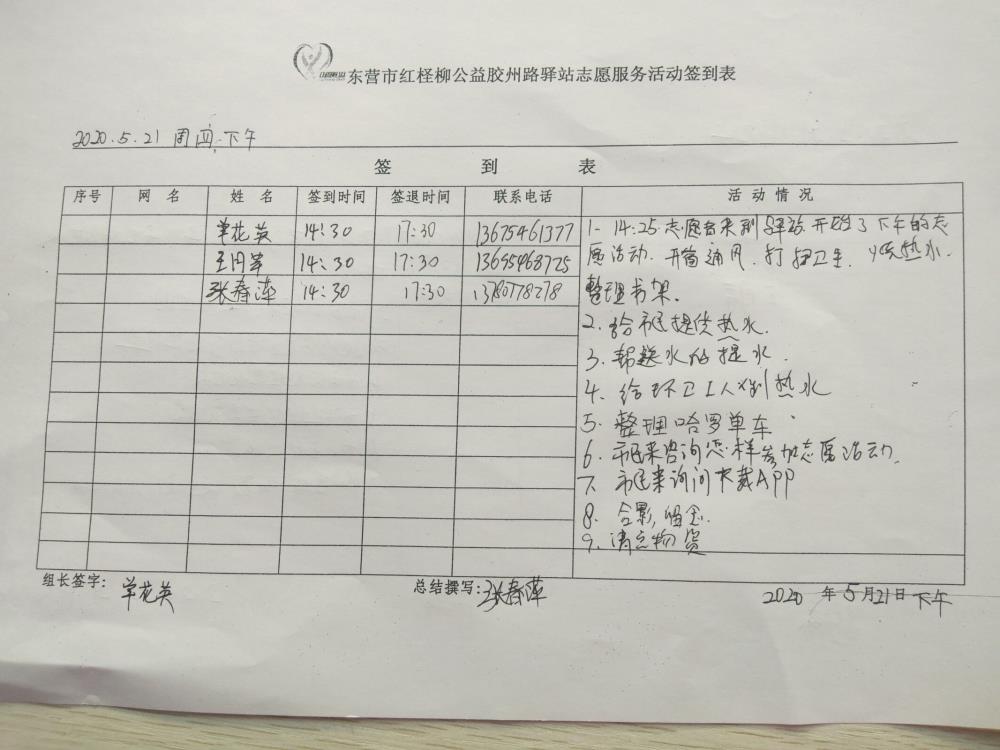 东营市红柽柳公益胶州路驿站志愿服务活动签到表
2020.5.21 周四.下午
签 到 表
序号 网 名 姓 名 签到时间 签退时间 联系电话 活 动 情 况
花英 14:30 17:30 13675461377
14:30 17:30 13695468725
张春萍 14:30 17:30
1- 14:25.志愿者来到驿站.开始了下午的志
愿活动.开窗通风.打扫卫生.烧热水.
整理书架.
2.给市民提供热水.
3.帮送水的提水.
4.给环卫工人倒热水
5.整理哈罗单车.
6.市民来咨询怎样参加志愿活动.
7.市民来询问下载APP
8.合影,留念.
9.清点物资
组长签字: 花英
总结撰写: 张春萍
2020 年 5 月 21 日 下午